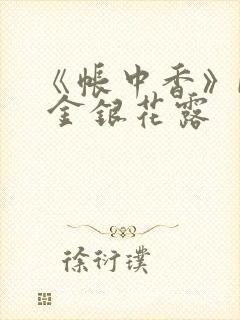 《帳中香》
金銀花露
徐衍璞